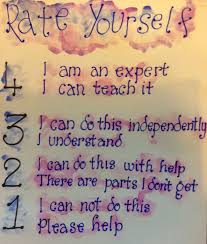 Rate Yourself
4 I am an expert
I can teach it
3 I can do this independently
I understand
2 I can do this with help
There are parts I don't get
1 I can not do this
Please help